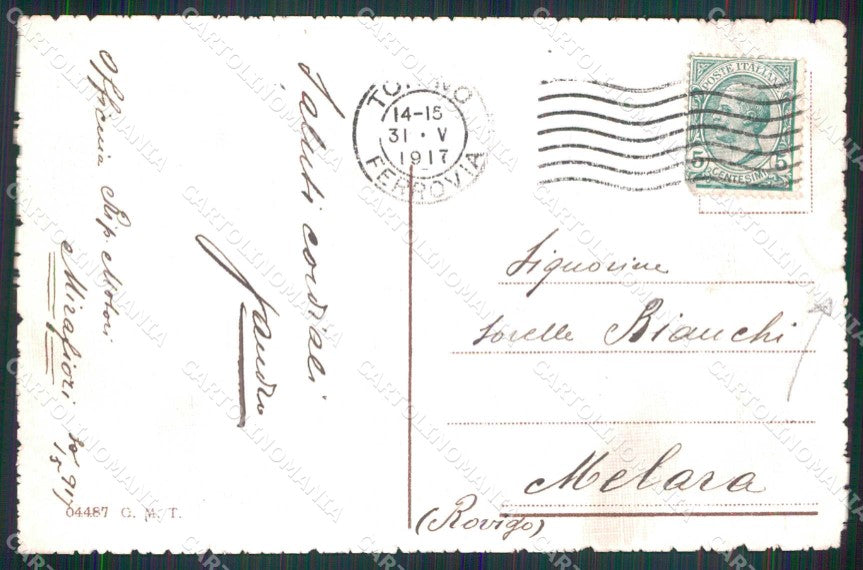 Officina Rip. Motori
Mirafiori 30/5 917
Saluti cordiali
Sandro
TORINO
14-15
31 · V
1917
FERROVIA
POSTE ITALIANE
5 5
CENTESIMI
Signorine
Sorelle Bianchi
Melara
(Rovigo)
04487 G. M. T.
CARTOLINOMANIA